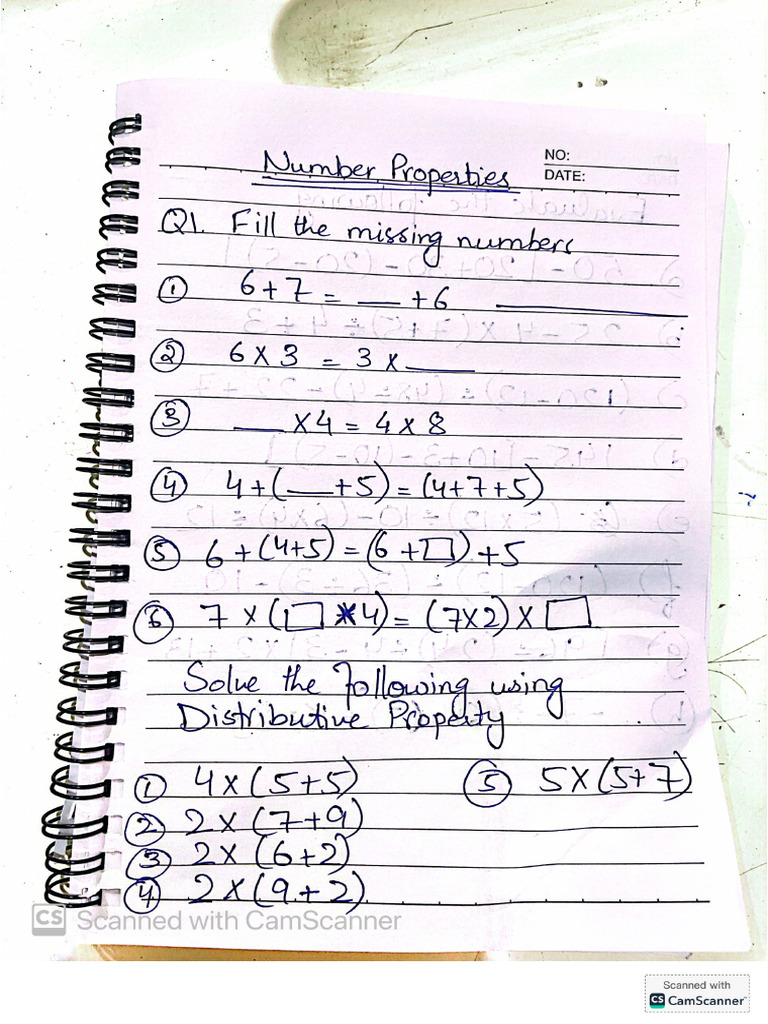 NO:
DATE:
Number Properties
Q1. Fill the missing numbers
① 6+7 = __ +6 ____
② 6 × 3 = 3 × ____
③ ___ × 4 = 4 × 8
④ 4 + ( __ + 5) = (4+7+5)
⑤ 6 + (4+5) = (6 + □) + 5
⑥ 7 × (□ * 4) = (7×2) × □
Solve the following using
Distributive Property
① 4 × (5+5) ⑤ 5 × (5+7)
② 2 × (7+9)
③ 2 × (6+2)
④ 2 × (9+2)
CS Scanned with CamScanner
Scanned with
CS CamScanner